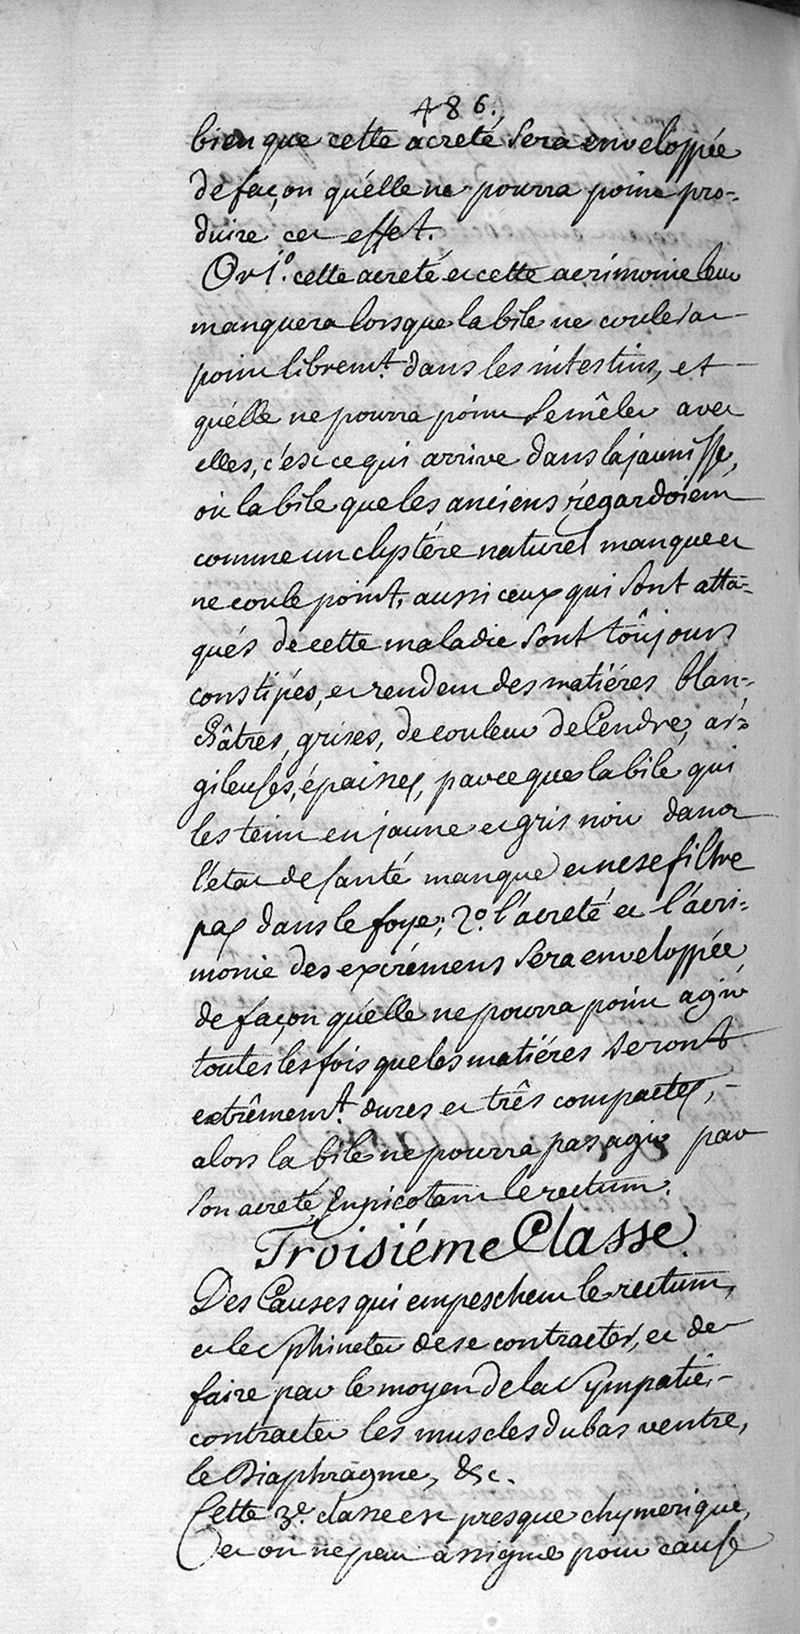 486.
bien que cette acreté sera enveloppée
de façon qu'elle ne pourra point pro-
duire cet effet.
Or 1.º cette acreté et cette acrimonie leur
manquera lorsque la bile ne coulera
point librem.t dans les intestins, et
qu'elle ne pourra point se mêler avec
elles, c'est ce qui arrive dans la jaunisse,
où la bile que les anciens regardoient
comme un clystére naturel manque et
ne coule point, aussi ceux qui sont atta-
qués de cette maladie sont toûjours
constipés, et rendent des matiéres blan-
châtres, grises, de couleur de Cendre, ar-
gileuses, épaisses, parce que la bile qui
les teint en jaune et gris noir dans
l'état de santé manque et ne se filtre
pas dans le foye; 2.º l'acreté et l'acri-
monie des excrémens sera enveloppée
de façon qu'elle ne pourra point agir
toutes les fois que les matiéres seront
extrêmem.t dures et três compactes,
alors la bile ne pourra pas agir par
son acreté en picotant le rectum.
Troisiéme Classe.
Des Causes qui empeschent le rectum,
et le sphincter de se contracter, et de
faire par le moyen de la sympatie
contracter les muscles du bas ventre,
le Diaphragme, &c.
Cette 3.e classe est presque chymerique,
et on ne peut assigner pour cause